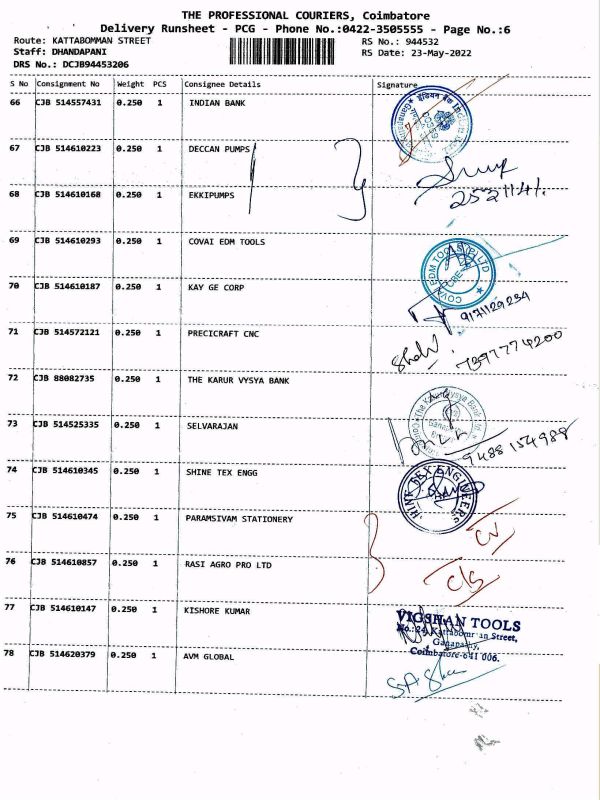 THE PROFESSIONAL COURIERS, Coimbatore
Delivery Runsheet - PCG - Phone No.:0422-3505555 - Page No.:6
Route: KATTABOMMAN STREET
RS No.: 944532
Staff: DHANDAPANI
RS Date: 23-May-2022
DRS No.: DCJB94453206
S No Consignment No Weight PCS Consignee Details Signature
66 CJB 514557431 0.250 1 INDIAN BANK
67 CJB 514610223 0.250 1 DECCAN PUMPS
68 CJB 514610168 0.250 1 EKKIPUMPS
69 CJB 514610293 0.250 1 COVAI EDM TOOLS
COVAI EDM TOOLS (P) LTD
CBE
70 CJB 514610187 0.250 1 KAY GE CORP
9171129234
71 CJB 514572121 0.250 1 PRECICRAFT CNC
7397774200
72 CJB 88082735 0.250 1 THE KARUR VYSYA BANK
73 CJB 514525335 0.250 1 SELVARAJAN
9488 154988
74 CJB 514610345 0.250 1 SHINE TEX ENGG
TEX ENGINEERS
75 CJB 514610474 0.250 1 PARAMSIVAM STATIONERY
76 CJB 514610857 0.250 1 RASI AGRO PRO LTD
C/S
77 CJB 514610147 0.250 1 KISHORE KUMAR
VIGSHAN TOOLS
No.: 24, Kattabomman Street,
Ganapathy,
Coimbatore-641 006.
78 CJB 514620379 0.250 1 AVM GLOBAL